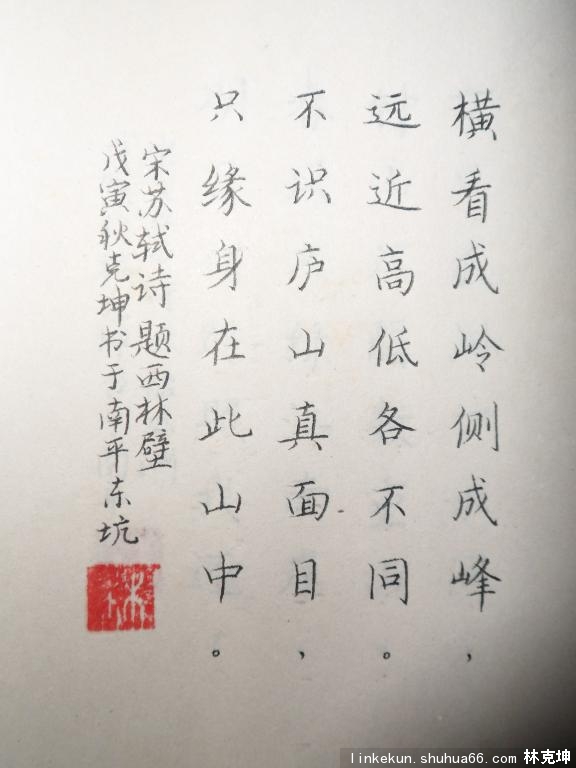 横看成岭侧成峰，
远近高低各不同。
不识庐山真面目，
只缘身在此山中。
宋苏轼诗题西林壁
戊寅秋克坤书于南平东坑
linkekun.shuhua66.com 林克坤